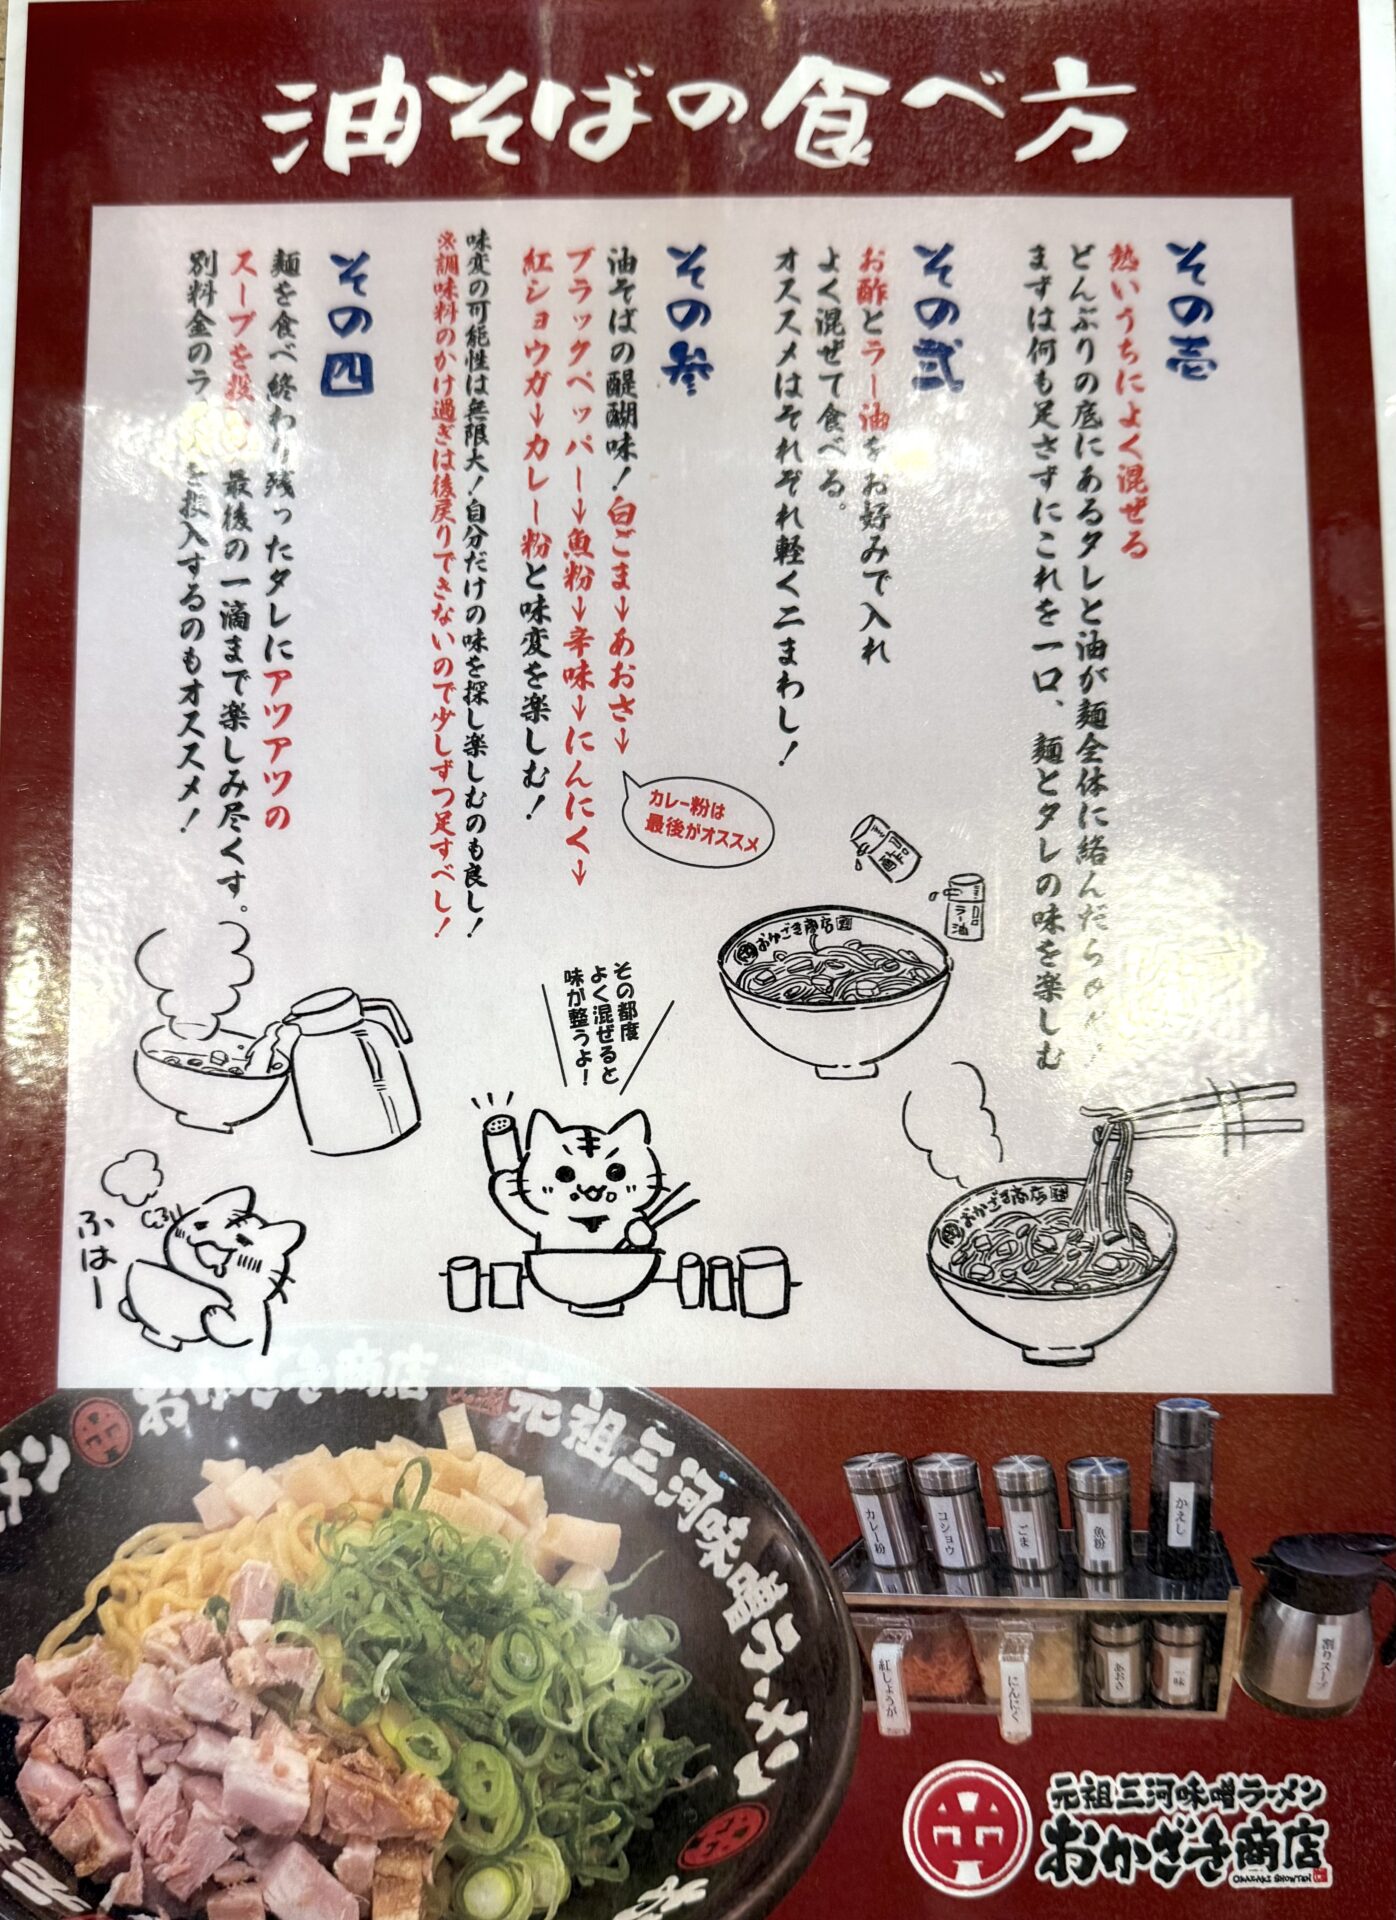 油そばの食べ方
その壱
熱いうちによく混ぜる
どんぶりの底にあるタレと油が麺全体に絡んだら
まずは何も足さずにこれを一口、麺とタレの味を楽しむ
その弐
お酢とラー油をお好みで入れ
よく混ぜて食べる。
オススメはそれぞれ軽く二まわし！
その参
油そばの醍醐味！白ごま→あおさ→
ブラックペッパー→魚粉→辛味→にんにく→
紅ショウガ→カレー粉と味変を楽しむ！
カレー粉は
最後がオススメ
味変の可能性は無限大！自分だけの味を探し楽しむのも良し！
※調味料のかけ過ぎは後戻りできないので少しずつ足すべし！
その四
麺を食べ終わり残ったタレにアツアツの
スープを投 最後の一滴まで楽しみ尽くす。
別料金のラ を投入するのもオススメ！
ラー油
おかざき商店
その都度
よく混ぜると
味が整うよ！
おかざき商店
ふはー
メン
おかざき商店
元祖三河味噌ラーメン
カレー粉
コショウ
ごま
魚粉
かえし
紅しょうが
にんにく
あおさ
一味
割りスープ
元祖三河味噌ラーメン
おかざき商店
OKAZAKI SHOWTEN